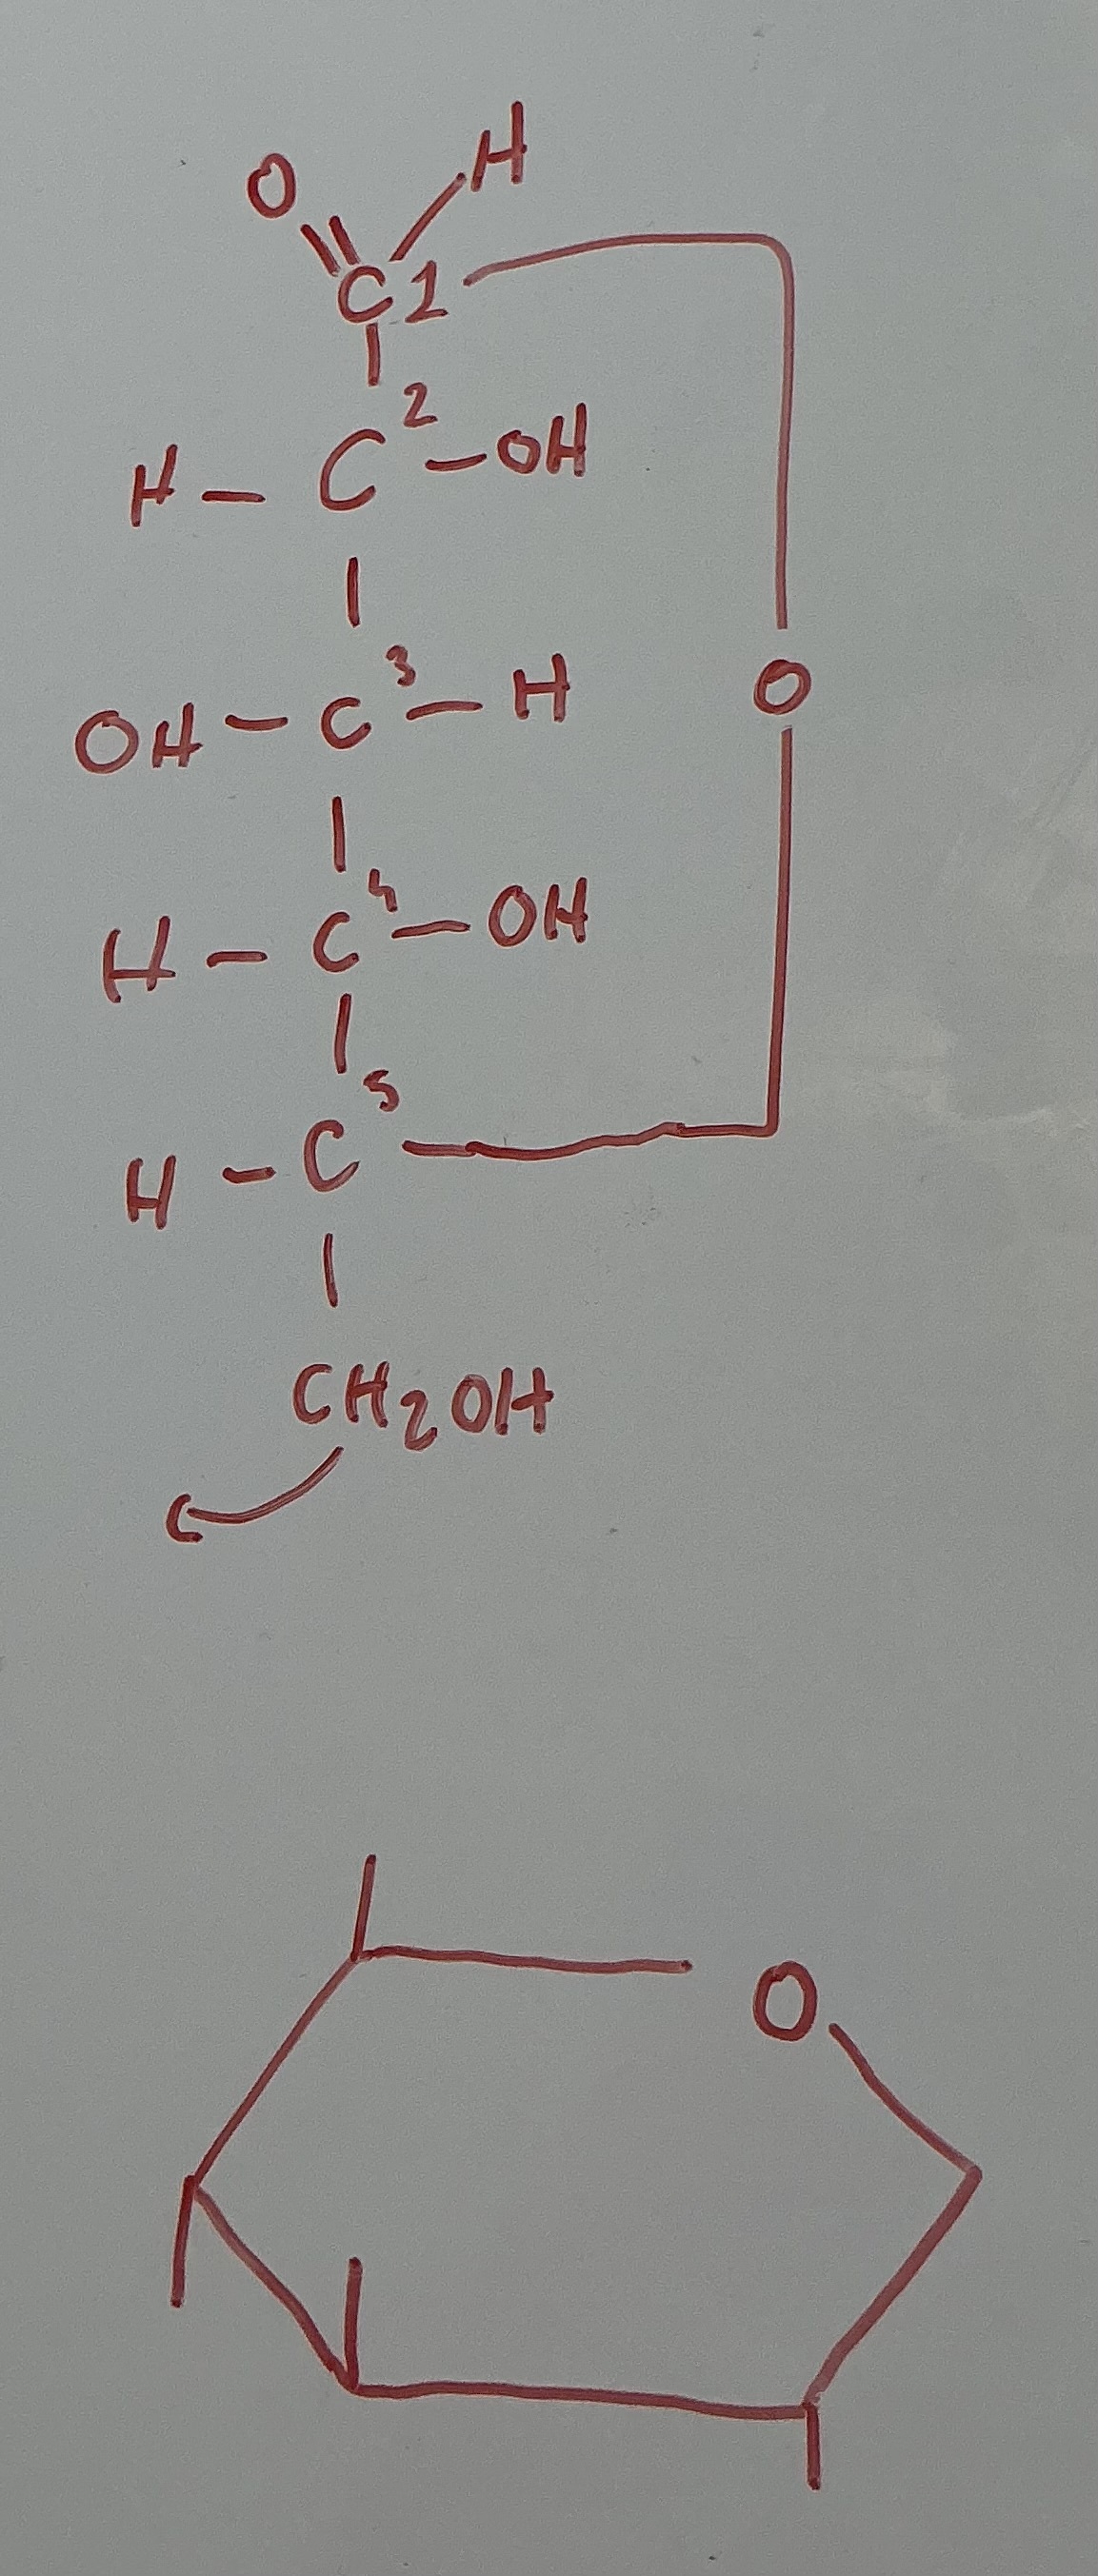 O H
C1
2
H - C - OH
3
OH - C - H
O
4
H - C - OH
5
H - C
CH2OH
O